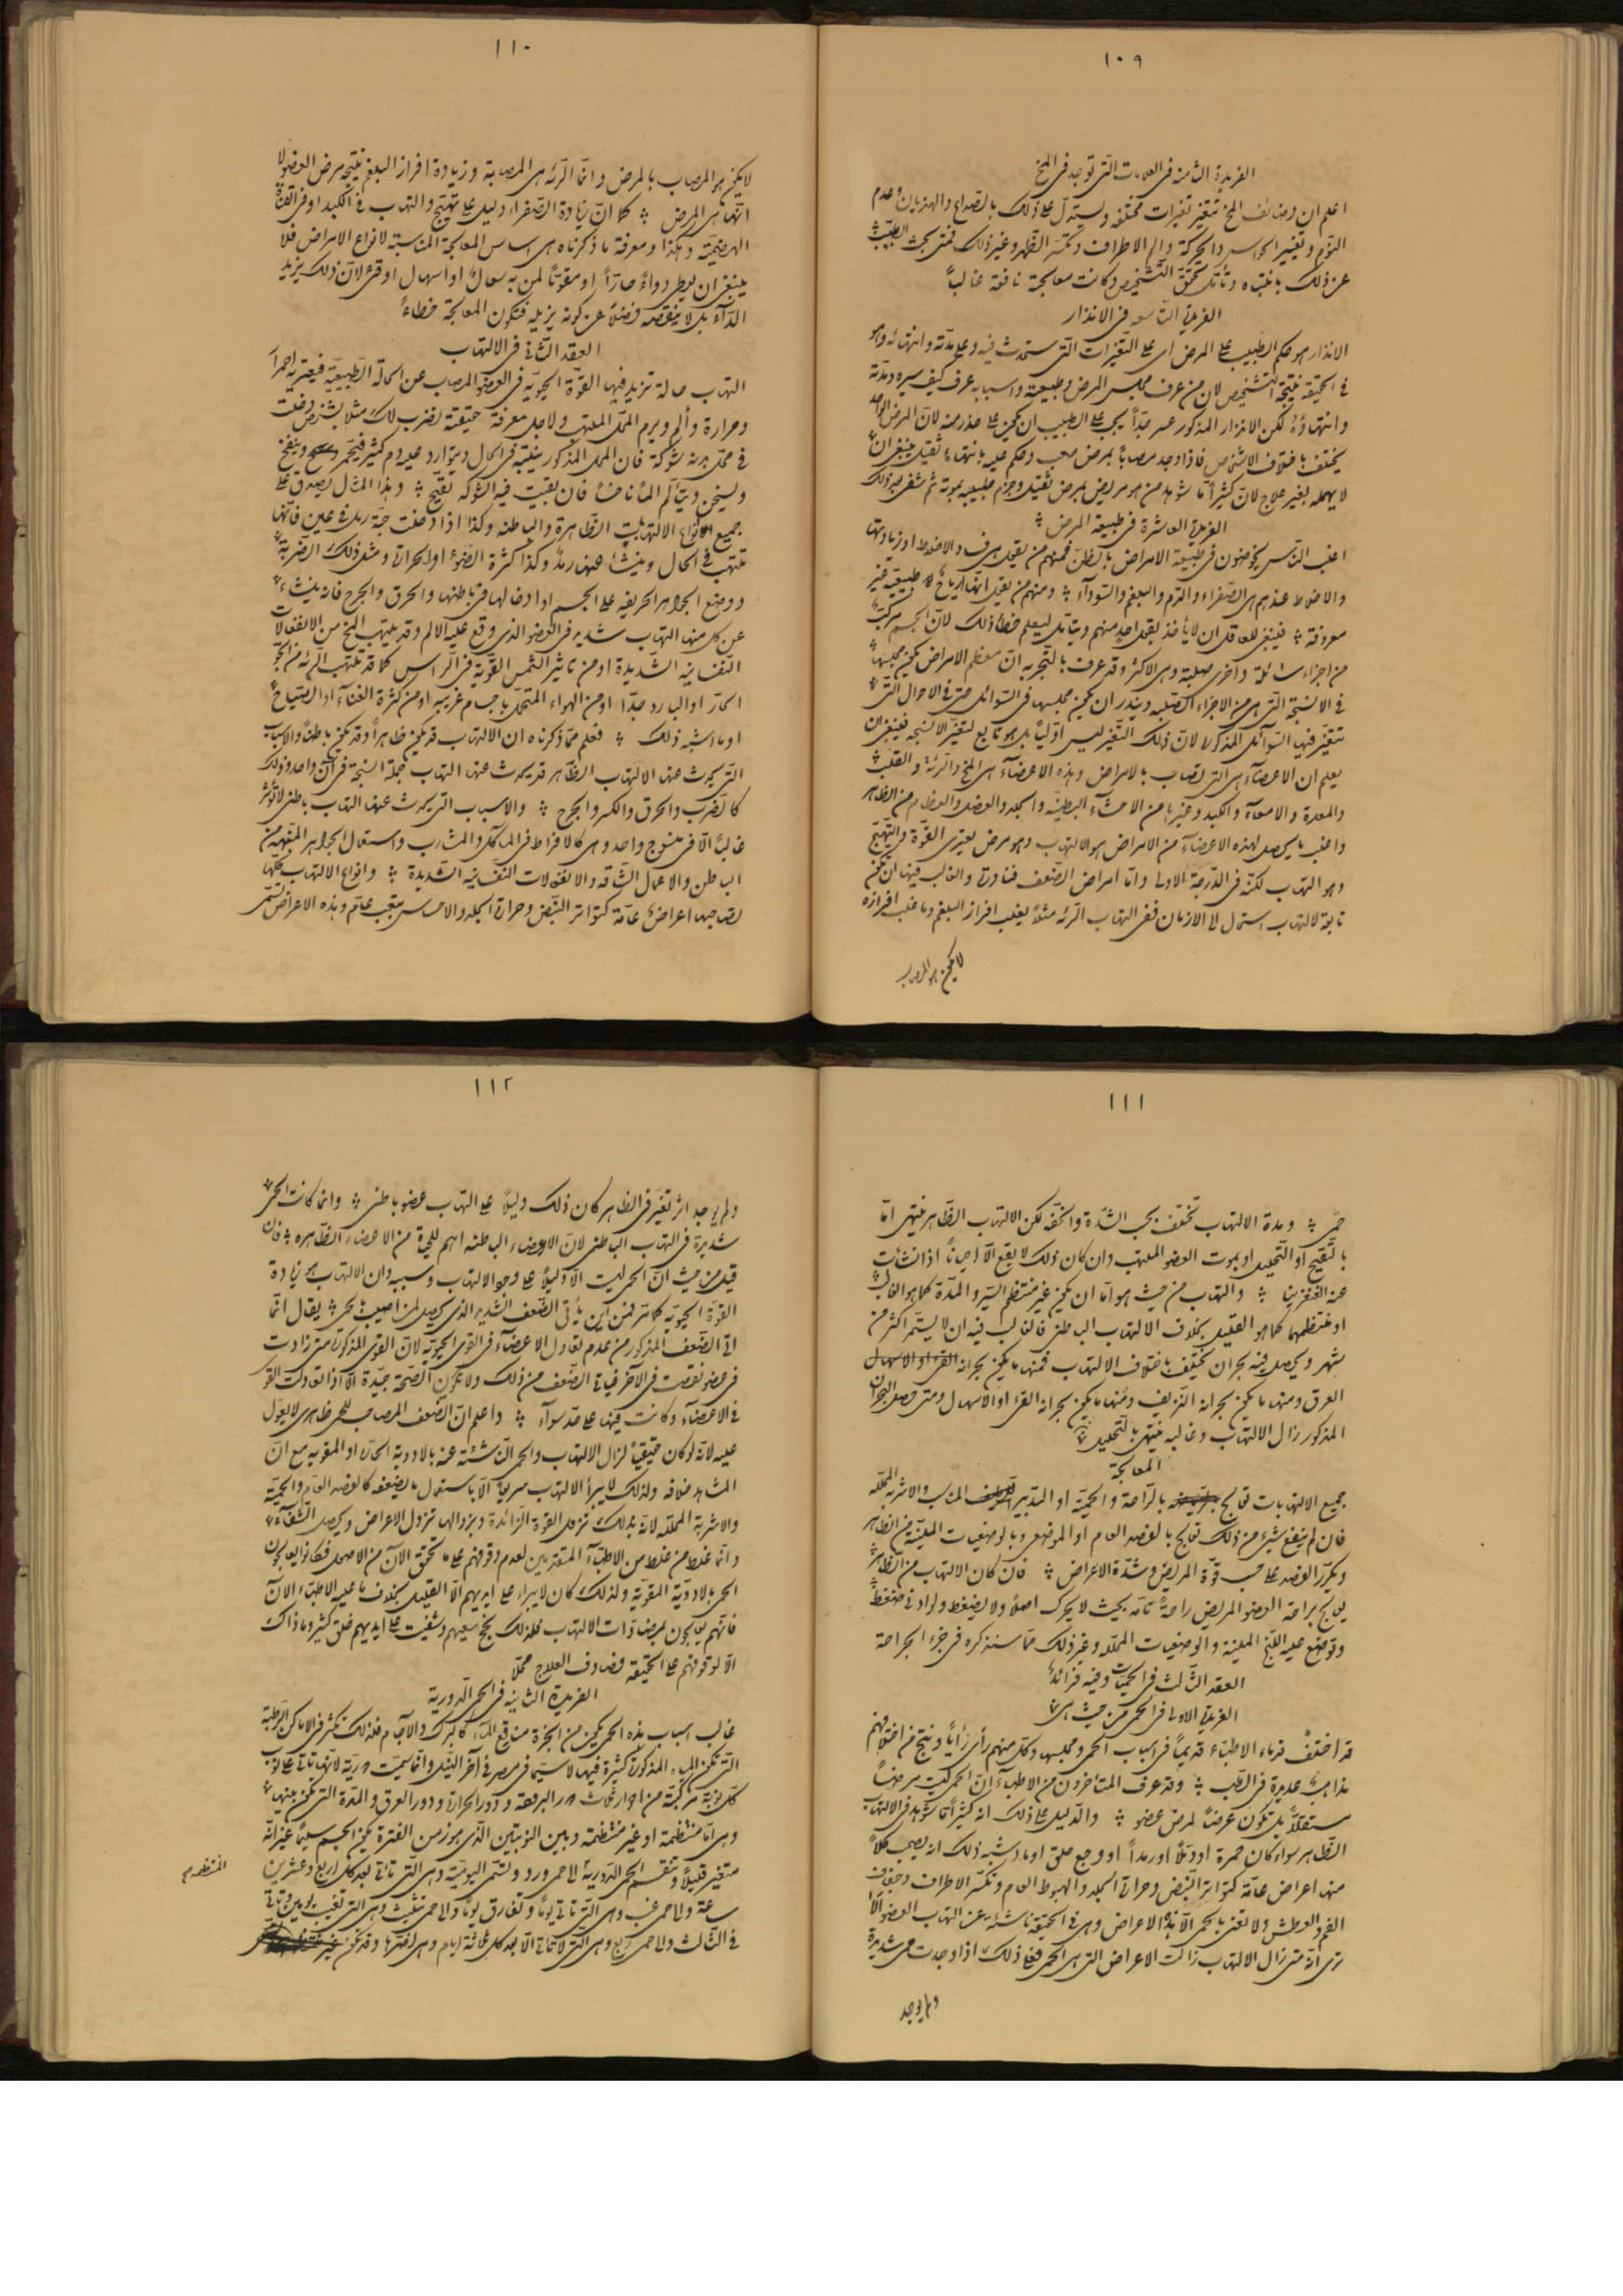 ١٠٩
الفريدة الثامنة فى العلامات التى توجد فى المخ
اعلم ان وظائف المخ تتغير تغيرات مختلفه ويستدل على ذلك بالصداع والهذيان وعدم
النوم وتغيير الحواس والحركة والم الاطراف وتكسر الظهر وغير ذلك فمتى بحث الطبيب
عن ذلك بانتباه وتأنّ تحقق التشخيص وكانت معالجة نافعة غالباً
الفريدة التاسعه فى الانذار
الانذار هو حكم الطبيب على المرض اى على التغيرات التى ستحدث فيه وعلى مدته وانتهائه وهو
فى الحقيقه نتيجة التشخيص لان من عرف مجلس المرض وطبيعته واسبابه عرف كيف سيره ومدته
وانتهاؤه لكن الانذار المذكور عسر جداً يجب على الطبيب ان يكون على حذر منه لان المرض الواحد
يختلف باختلاف الاشخاص فاذا وجد مصاباً بمرض صعب وحكم عليه بانتهاء ثقيل ينبغى ان
لا يهمله بغير علاج لان كثيراً ما شوهد من هو مريض بمرض ثقيل وجزم طبيبه بموته ثم شفى بعد ذلك
الفريدة العاشرة فى طبيعة المرض
اغلب الناس يخوضون فى طبيعة الامراض بالظن فمنهم من يقول هى فساد الاخلاط او زيادتها
والاخلاط عندهم هى الصفراء والدم والبلغم والسوداء ومنهم من يقول انها ارياح طبيعية غير
معروفة فينبغى للعاقل ان لا يأخذ بقول احد منهم ويتأمل ليعلم خطأ ذلك لان الجسم مركب
من اجزاء سائلة واخرى صلبة وهى الاكثر وقد عرف بالتجربه ان معظم الامراض يكون مجلسها
فى الانسجة التى هى من الاجزاء الصلبه ويندر ان يكون مجلسها فى السوائل حتى فى الاحوال التى
تتغير فيها السوائل المذكورة لان ذلك التغير ليس اولياً بل هو تابع لتغير الانسجه فينبغى ان
يعلم ان الاعضاء هى التى تصاب بالامراض وهذه الاعضاء هى المخ والرئة والقلب
والمعدة والامعاء والكبد وغيرها من الاحشاء البطنيه والجلد والعضل والعظام من الظاهر
واغلب ما يحصل لهذه الاعضاء من الامراض هو الالتهاب وهو مرض يعترى القوة والتهيج
وهو التهاب لكنه فى الدرجة الاولى واما امراض الضعف فنادرة والغالب فيها ان تكون
تابعة لالتهاب استحال الى الازمان ففى التهاب الرئه مثلاً يغلب افراز البلغم وما غلب افرازه
لا يكون هو المصاب
١١٠
لا يكون هو المصاب بالمرض وانما الرئه هى المصابة وزيادة افراز البلغم نتيجة مرض العضو لا
انها هى المرض كما ان زيادة الصفراء دليل على تهيج والتهاب فى الكبد او فى القناة
الهضمية وهكذا ومعرفة ما ذكرناه هى اساس المعالجة المناسبة لانواع الامراض فلا
ينبغى ان يعطى دواءً حاراً او مقوياً لمن به سعال او اسهال او قئ لان ذلك يزيد
الداء بل لا ينقصه فضلاً عن كونه يزيله فتكون المعالجة خطاءً
العقد الثانى فى الالتهاب
التهاب حالة تزيد فيها القوة الحيوية فى العضو المصاب عن الحالة الطبيعية فيعتريه احمرار
وحرارة وألم ويرم المحل الملتهب ولاجل معرفة حقيقته نضرب لك مثلا بشخص دخلت
فى محل بدنه شوكة فان المحل المذكور يتنبه فى الحال ويتوارد عليه دم كثير فيحمر وينتفخ
ويسخن ويتألم الماً ناخساً فان بقيت فيه الشوكه تقيح وهذا المثال يصدق على
جميع انواع الالتهابات الظاهرة والباطنه وكذا اذا دخلت حبة رمل فى عين فانها
تلتهب فى الحال وينشأ عنها رمد وكذا كثرة الضوء او الحرارة ومثل ذلك الضربة
ووضع الجواهر الحريفه على الجسم او ادخالها فى باطنها والحرق والجرح فانه ينشأ
عن كل منها التهاب شديد فى العضو الذى وقع عليه الالم وقد يلتهب المخ من الانفعالات
النفسانيه الشديدة او من تاثير الشمس القوية فى الراس كما قد تلتهب الرئه من الجو
الحار او البارد جداً او من الهواء المتحمل باجسام غريبه او من كثرة الغناء او الصياح
او ما اشبه ذلك فعلم مما ذكرناه ان الالتهاب قد يكون ظاهراً وقد يكون باطناً والاسباب
التى يحدث عنها الالتهاب الظاهر قد يحدث عنها التهاب جملة انسجة فى آن واحد وذلك
كالضرب والحرق والكسر والجرح والاسباب التى يحدث عنها التهاب باطنى لا تؤثر
غالباً الا فى منسوج واحد وهى كالافراط فى المآكل والمشارب واستعمال الجواهر المنبهة من
الباطن والاعمال الشاقه والانفعالات النفسانيه الشديدة وانواع الالتهاب كلها
تصاحبها اعراض عامة كتواتر النبض وحرارة الجلد والاحساس بتعب عام وهذه الاعراض تسمى
١١١
حمى ومدة الالتهاب تختلف بحسب الشدة والخفه لكن الالتهاب الظاهر ينتهى اما
بالتقيح او التحليل او بموت العضو الملتهب وان كان ذلك لا يقع الا احياناً اذا نشأت
عنه الغنغرينا والتهاب من حيث هو اما ان يكون غير منتظم السير والمدة كما هو الغالب
او منتظمهما كما هو القليل بخلاف الالتهاب الباطنى فالغالب فيه ان لا يستمر اكثر من
شهر ويحصل فيه بحران يختلف باختلاف الالتهاب فمنها ما يكون بحرانه القئ او الاسهال
العرق ومنها ما يكون بحرانه النزيف ومنها ما يكون بحرانه القئ او الاسهال ومتى حصل البحران
المذكور زال الالتهاب وغالبه ينتهى بالتحليل
المعالجة
جميع الالتهابات تعالج بالراحة والحمية او التدبير المناسب والاشربه المحلله
فان لم ينفع شئ من ذلك تعالج بالفصد العام او الموضعى وبالوضعيات الملينة من الظاهر
ويكرر الفصد على حسب قوة المريض وشدة الاعراض فان كان الالتهاب من الظاهر
يعالج براحة العضو المريض راحةً تامه بحيث لا يحرك اصلاً ولا يضغط ولو ادنى ضغط
وتوضع عليه اللبخ الملينة والوضعيات المحلله وغير ذلك مما سنذكره فى جزء الجراحة
العقد الثالث فى الحميات وفيه فرائد
الفريدة الاولى فى الحمى من حيث هى
قد اختلف قدماء الاطباء قديماً فى اسباب الحمى ومجلسها وكل منهم رأى رأياً ونتج من اختلافهم
مذاهب عديدة فى الطب وقد عرف المتأخرون من الاطباء ان الحمى ليست مرضاً
مستقلاً بل تكون عرضاً لمرض عضو والدليل على ذلك انه كثيراً ما شوهد فى الالتهاب
الظاهر سواء كان حمرة او دملاً او رمداً او وجع حلق او ما اشبه ذلك انه يصحب كلاً
منها اعراض عامة كتواتر النبض وحرارة الجلد والهبوط العام وتكسر الاطراف وجفاف
الفم والعطش ولا تعنى بالحمى الا هذه الاعراض وهى فى الحقيقة ناشئة عن التهاب العضو الا
ترى انه متى زال الالتهاب زالت الاعراض التى هى الحمى فعلى ذلك اذا وجدت حمى شديدة
ولم يوجد
١١٢
ولم يوجد اثر تغير فى الظاهر كان ذلك دليلاً على التهاب عضو باطنى وانما كانت الحمى
شديدة فى التهاب الباطنى لان الاعضاء الباطنه اهم للحياة من الاعضاء الظاهره فان
قيل من حيث ان الحمى ليست الا دليلاً على وجود الالتهاب وسببه وان الالتهاب هو زيادة
القوة الحيويه كما مر فمن اين يأتى الضعف الشديد الذى يحصل لمن اصيب بالحمى يقال انما
اتى الضعف المذكور من عدم تعادل الاعضاء فى القوى الحيوية لان القوى المذكورة متى زادت
فى عضو نقصت فى الآخر فياتى الضعف من ذلك ولا تكون الصحة جيدة الا اذا تعادلت القوى
فى الاعضاء وكانت كلها على حد سواء واعلم ان الضعف المصاحب للحمى ظاهرى لا يعول
عليه لانه لو كان حقيقياً لزال الالتهاب والحمى الناشئة عنه بالادوية الحارة او المقويه مع ان
المشاهد خلافه ولذلك لا يبرأ الالتهاب سريعاً الا باستعمال ما يضعفه كالفصد العام والحمية
والاشربة المحلله لانه بذلك تزول القوة الزائدة وبزوالها تزول الاعراض ويحصل الشفاء
وانما غلط من غلط من الاطباء المتقدمين لعدم وقوفهم على ما تحقق الآن من الاصول فكانوا يعالجون
الحمى بالادوية المقوية ولذلك كان لا يبراء على ايديهم الا القليل بخلاف ما عليه الاطباء الآن
فانهم يعالجون بمضادات الالتهاب فلذلك نجح سعيهم وشفيت على ايديهم خلق كثير وما ذاك
الا لوقوفهم على الحقيقه وصادف العلاج محلاً
الفريدة الثانيه فى الحمى الدورية
غالب اسباب هذه الحمى يكون من ابخرة مناقع الماء كالبرك والآجام فلذلك تكثر فى الاماكن الرطبة
التى تكون المياه المذكورة كثيرة فيها لا سيما فى مصر فى آخر النيل وانما سميت دورية لانها تاتى على نوب
كل نوبة مركبة من ادوار ثلاث دور البرد ودور الحرارة ودور العرق والمدة التى تكون بينها
وهى اما منتظمة او غير منتظمة وبين النوبتين الذى هو زمن الفترة يكون الجسم سليماً غير انه
متغير قليلاً وتنقسم الحمى الدورية الى حمى ورد وتسمى اليوميه وهى التى تاتى بعد كل اربع وعشرين
ساعة والى حمى غب وهى التى تاتى يوماً وتفارق يوماً والى حمى مثلثة وهى التى تغيب يومين وتاتى
فى الثالث والى حمى ربع وهى التى لا تاتى الا بعد كل ثلاثة ايام وهى اخصها وقد تكون غير
المنتظمه